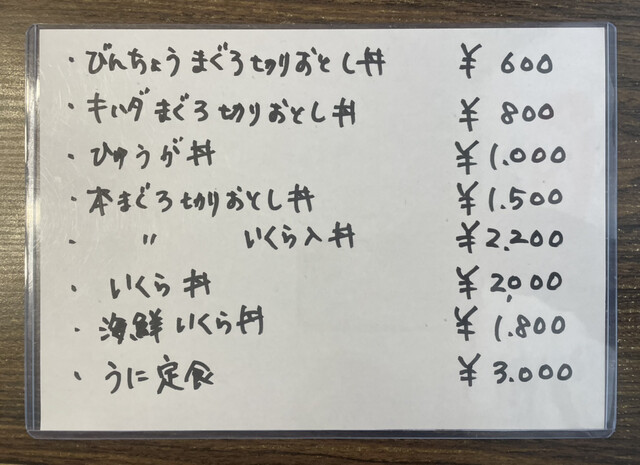 ・びんちょうまぐろ切りおとし丼 ¥600
・キハダまぐろ切りおとし丼 ¥800
・ひゅうが丼 ¥1.000
・本まぐろ切りおとし丼 ¥1.500
・ 〃 いくら入丼 ¥2.200
・いくら丼 ¥2,000
・海鮮いくら丼 ¥1.800
・うに定食 ¥3.000